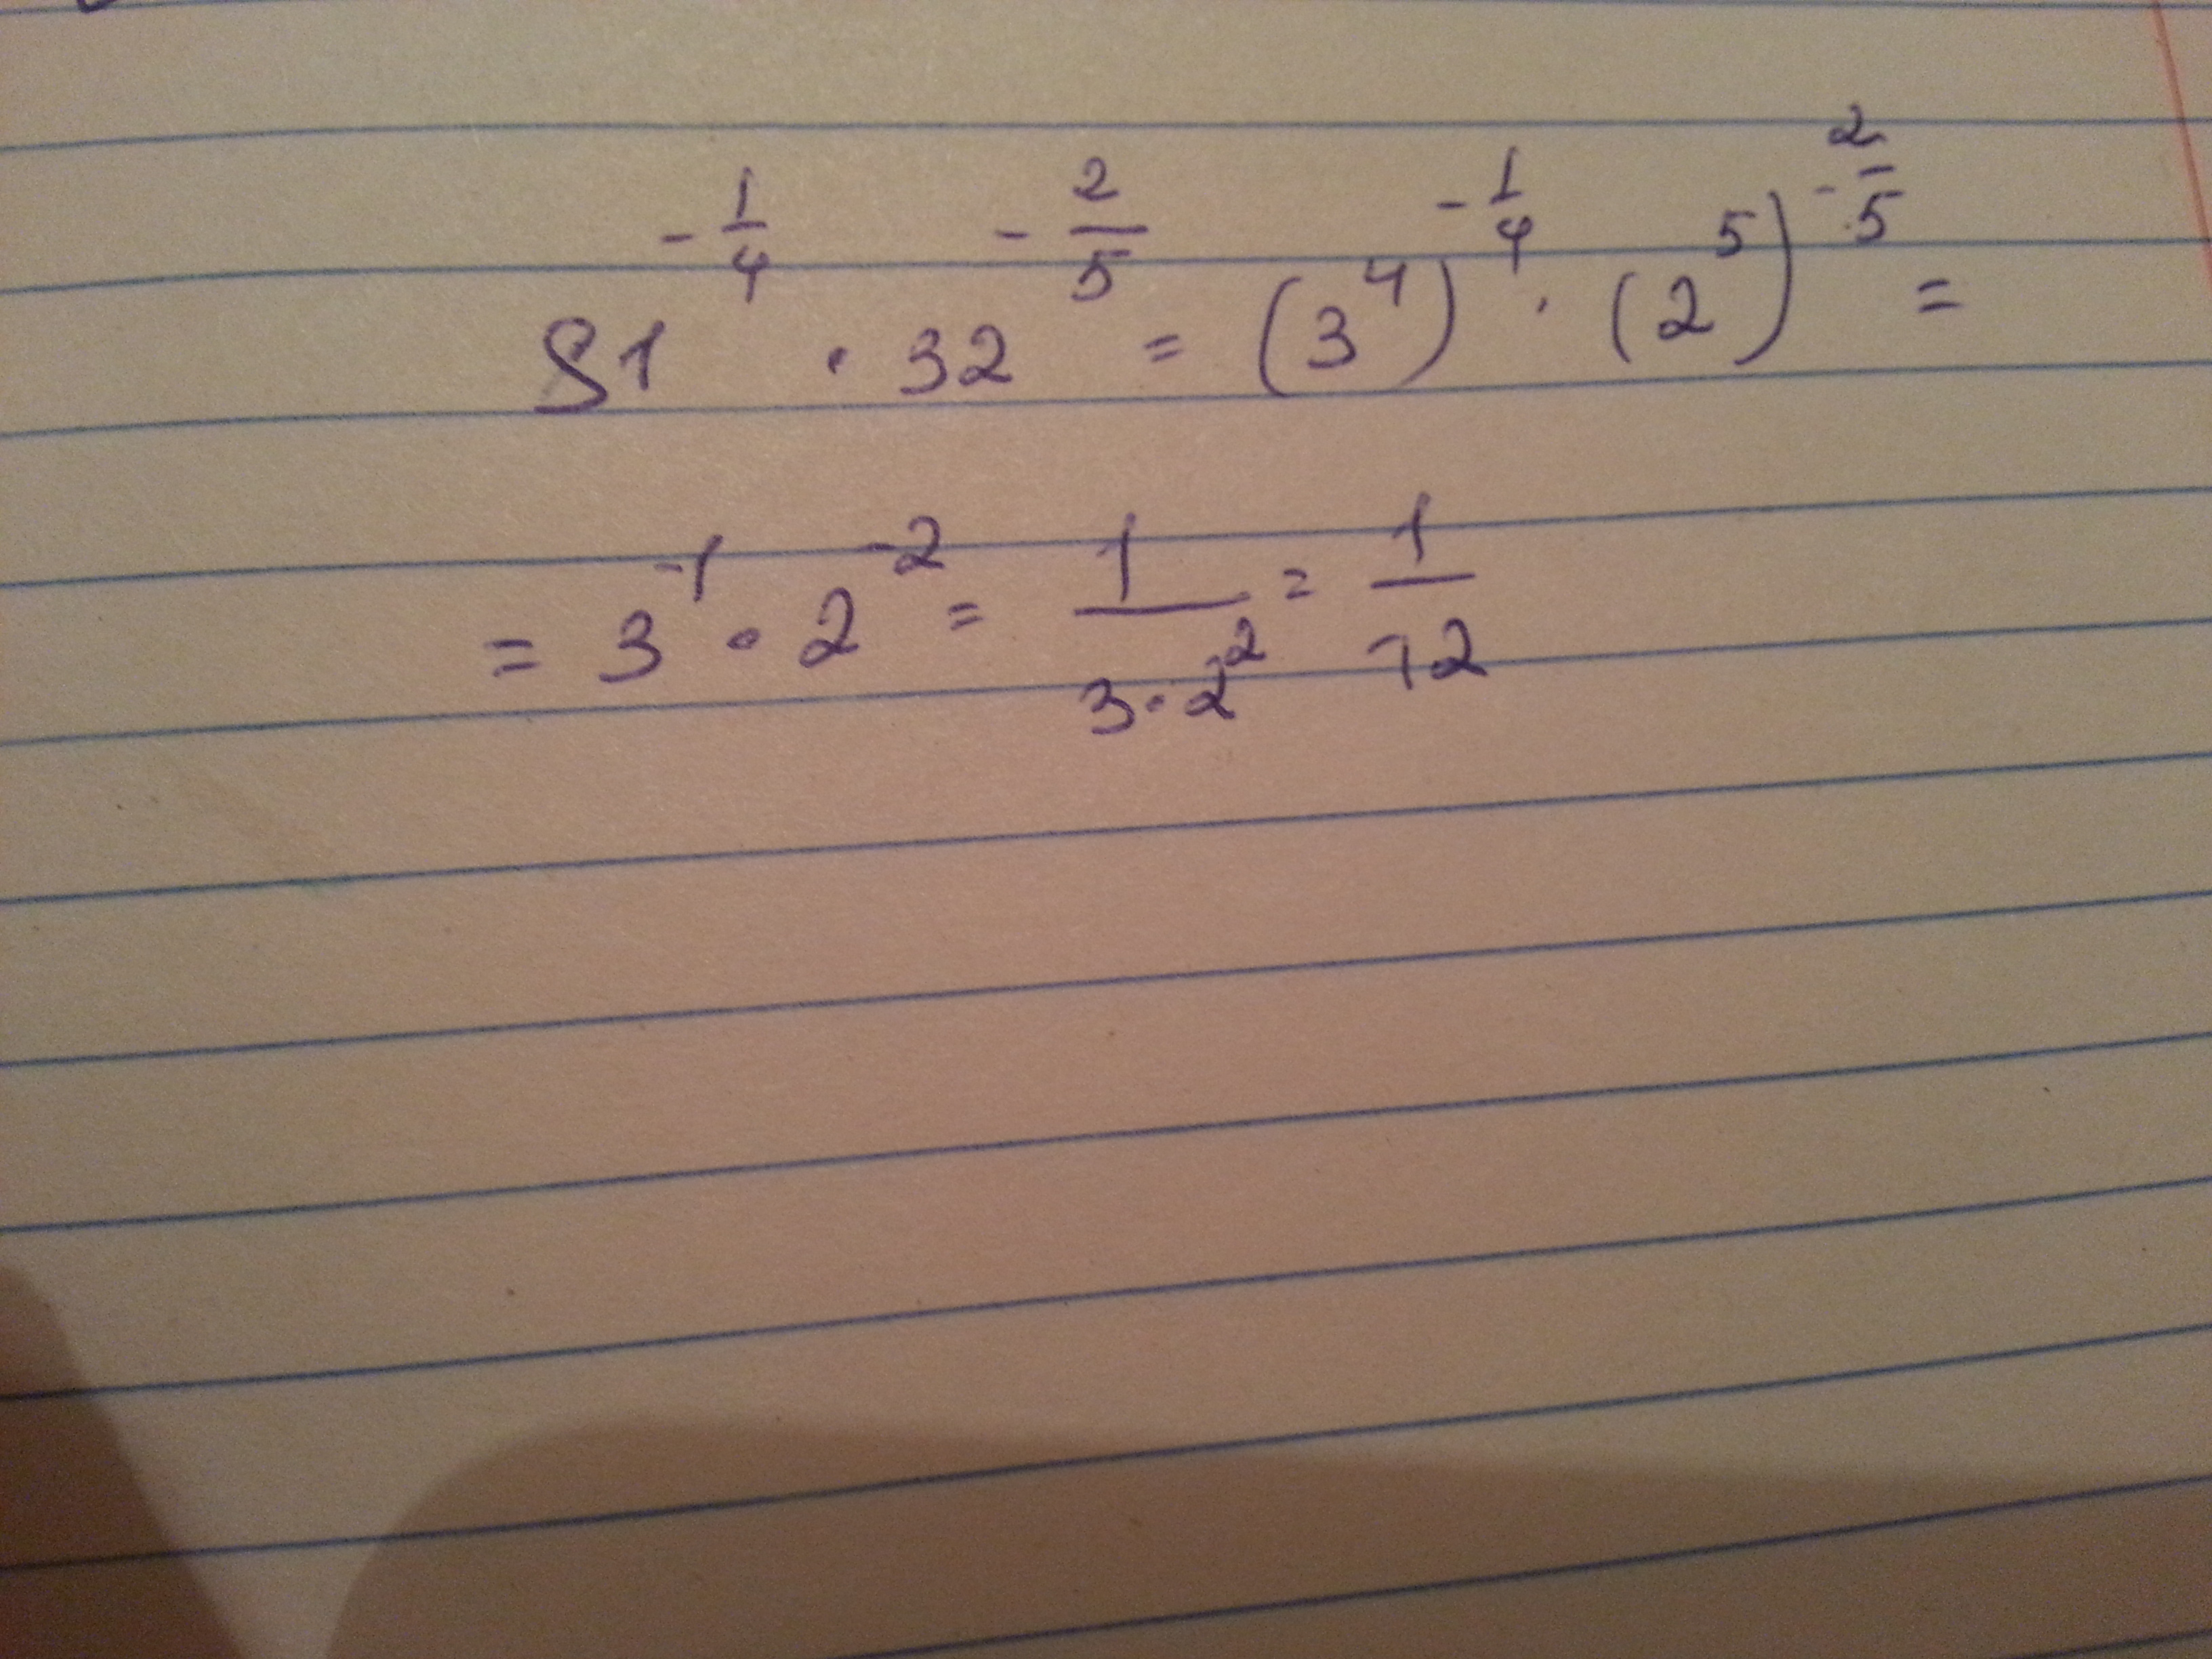 81^{-\frac{1}{4}} · 32^{-\frac{2}{5}} = (3^4)^{-\frac{1}{4}} · (2^5)^{-\frac{2}{5}} =
= 3^{-1} · 2^{-2} = \frac{1}{3·2^2} = \frac{1}{12}